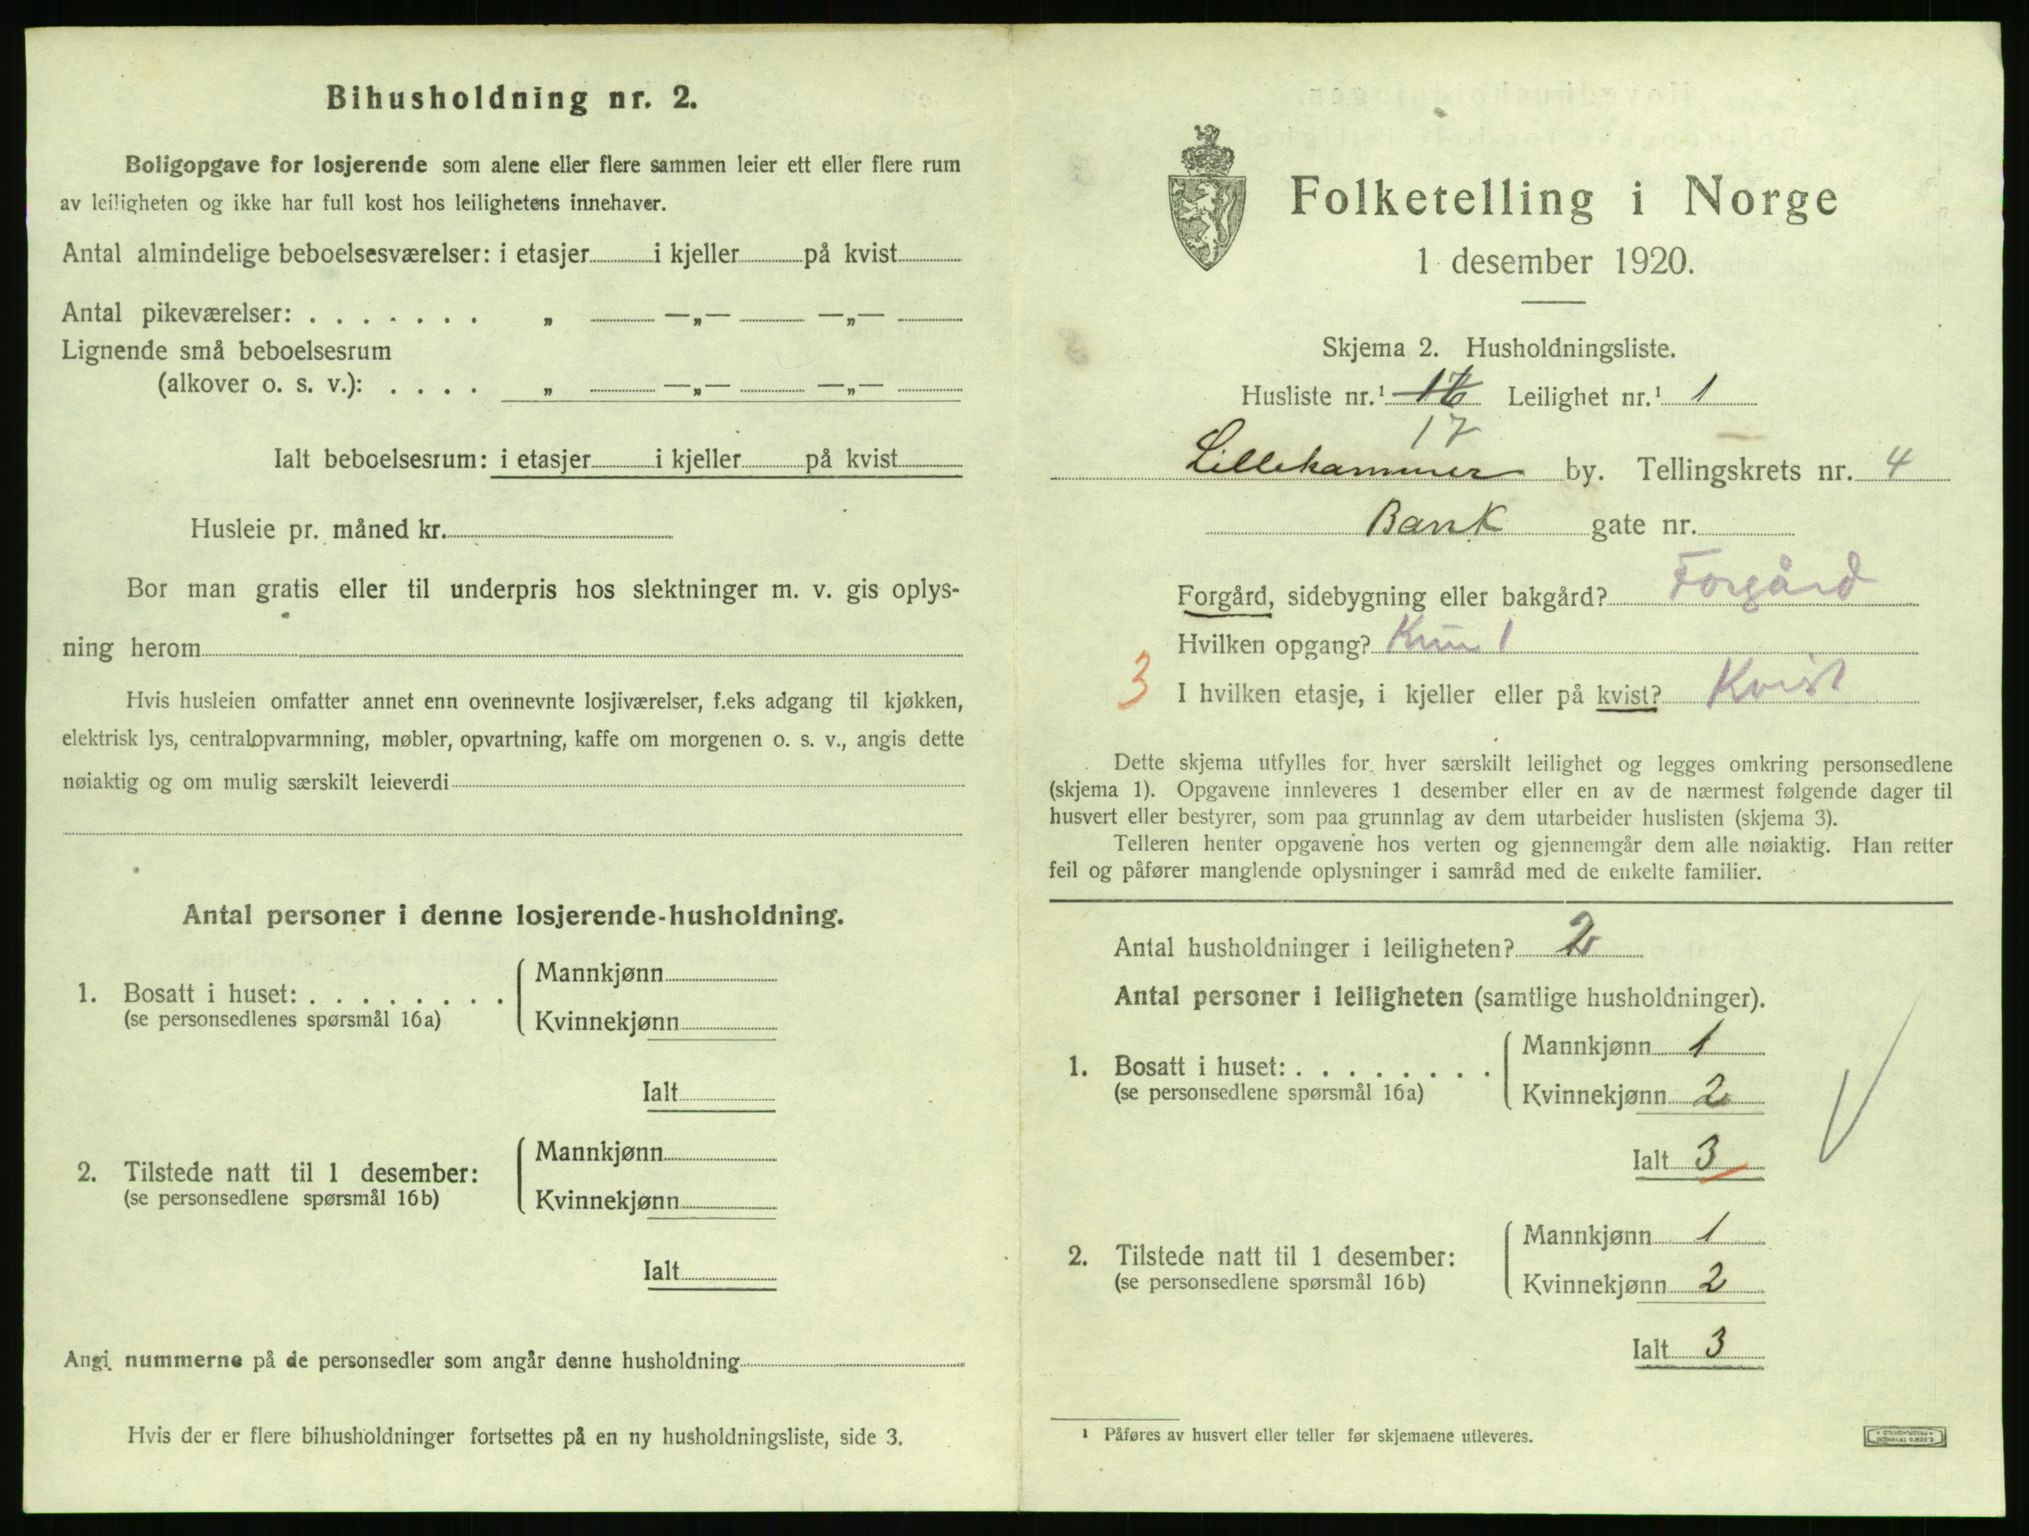 Bihusholdning nr. 2.
Boligopgave for losjerende som alene eller flere sammen leier ett eller flere rum
av leiligheten og ikke har full kost hos leilighetens innehaver.
Antal almindelige beboelsesværelser: i etasjer i kjeller på kvist
Antal pikeværelser: . . . . . . . „ —„— —„—
Lignende små beboelsesrum
(alkover o. s. v.): . . . . „ —„— —„—
Ialt beboelsesrum: i etasjer i kjeller på kvist
Husleie pr. måned kr.
Bor man gratis eller til underpris hos slektninger m. v. gis oplys-
ning herom
Hvis husleien omfatter annet enn ovennevnte losjiværelser, f.eks adgang til kjøkken,
elektrisk lys, centralopvarmning, møbler, opvartning, kaffe om morgenen o. s. v., angis dette
nøiaktig og om mulig særskilt leieverdi
Antal personer i denne losjerende-husholdning.
1. Bosatt i huset: . . . . . . . .
(se personsedlenes spørsmål 16a)
Mannkjønn
Kvinnekjønn
Ialt
2. Tilstede natt til 1 desember:
(se personsedlene spørsmål 16b)
Mannkjønn
Kvinnekjønn
Ialt
Angi nummerne på de personsedler som angår denne husholdning
Hvis der er flere bihusholdninger fortsettes på en ny husholdningsliste, side 3.
Folketelling i Norge
1 desember 1920.
Skjema 2. Husholdningsliste.
Husliste nr.¹ Leilighet nr.¹ 1
17
Lillehammer by. Tellingskrets nr. 4
Bank gate nr.
Forgård, sidebygning eller bakgård? Forgård
Hvilken opgang? Kun 1
3 I hvilken etasje, i kjeller eller på kvist? Kvist
Dette skjema utfylles for hver særskilt leilighet og legges omkring personsedlene
(skjema 1). Opgavene innleveres 1 desember eller en av de nærmest følgende dager til
husvert eller bestyrer, som paa grunnlag av dem utarbeider huslisten (skjema 3).
Telleren henter opgavene hos verten og gjennemgår dem alle nøiaktig. Han retter
feil og påfører manglende oplysninger i samråd med de enkelte familier.
Antal husholdninger i leiligheten? 2
Antal personer i leiligheten (samtlige husholdninger).
1. Bosatt i huset: . . . . . . . .
(se personsedlene spørsmål 16a)
Mannkjønn 1
Kvinnekjønn 2
Ialt 3
2. Tilstede natt til 1 desember:
(se personsedlene spørsmål 16b)
Mannkjønn 1
Kvinnekjønn 2
Ialt 3
¹ Påføres av husvert eller teller før skjemaene utleveres.